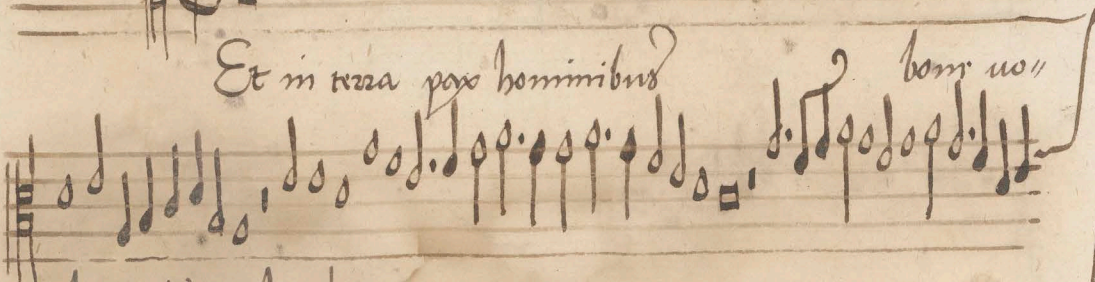 Et in terra pax hominibus bone uo〃